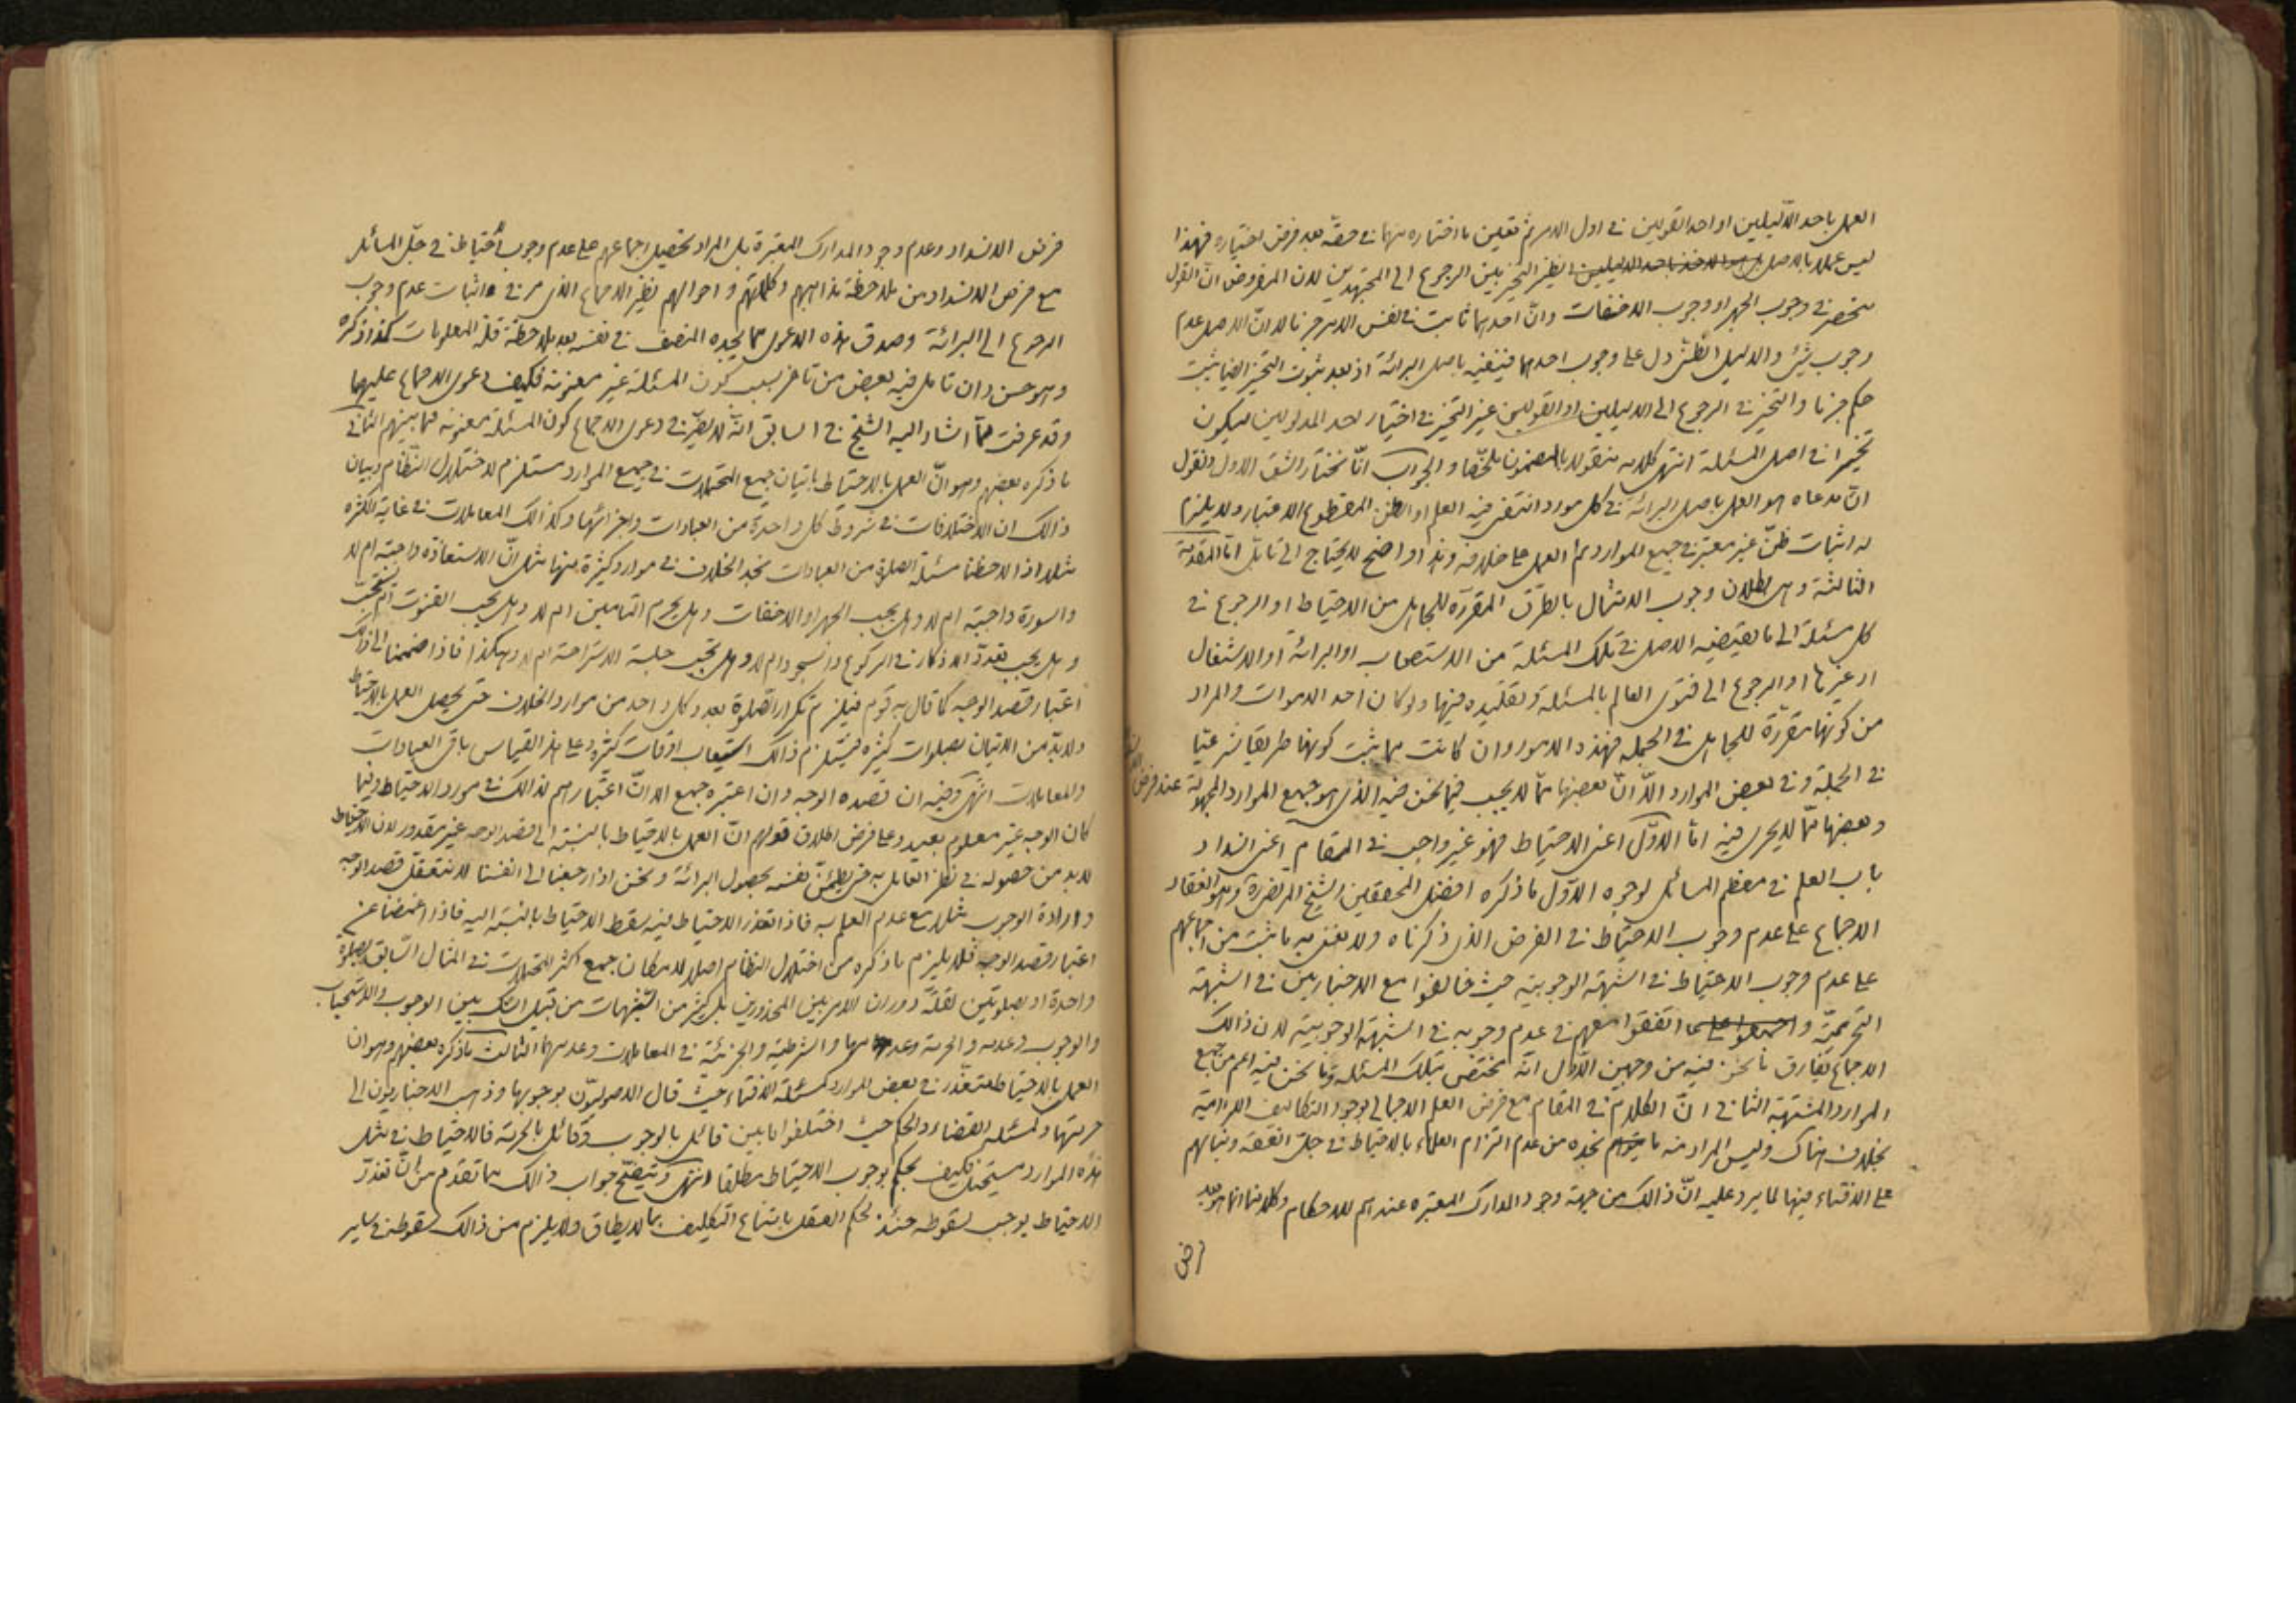 العمل باحد الدّليلين او احد القولين فى اول الامر ثم تعين ما اختاره منهما فى حقه بعد فرض اختياره فهذا
ليس عملا بالاصل نظير التخيير بين الرجوع الى المجتهدين لان المفروض ان القول
منحصر فى وجوب الجهر او وجوب الاخفات وانّ احدهما ثابت فى نفس الامر جزما لا انّ الاصل عدم
وجوب شئ والدليل الظنى دل على وجوب احدهما فينفيه باصل البرائة اذ بعد ثبوت التخيير ايضا يثبت
حكم جزما والتخيير فى الرجوع الى الدليلين او القولين غير التخيير فى اختيار احد المدلولين ليكون
تخييرا فى اصل المسئلة انتهى كلامه منقولا بالمضمون ملخّصا والجواب انّا نختار الشق الاول ونقول
انّ مدعاه هو العمل باصل البرائة فى كل مورد انتفى فيه العلم او الظن المقطوع الاعتبار ولا يلزم
له اثبات ظنّ غير معتبر فى جميع الموارد ثم العمل على خلافه وهذا واضح لا يحتاج الى تامّل امّا المقدمة
الثالثة وهى بطلان وجوب الامتثال بالطرق المقررة للجاهل من الاحتياط او الرجوع فى
كل مسئلة الى ما يقتضيه الاصل فى تلك المسئلة من الاستصحاب او البرائة او الاشتغال
او غيرها او الرجوع الى فتوى العالم بالمسئلة وتقليده فيها ولو كان احد الاموات والمراد
من كونها مقرّرة للجاهل فى الجملة فهذه الامور وان كانت مما يثبت كونها طريقا شرعيّا
فى الجملة وفى بعض الموارد الّا انّ بعضها ممّا لا يجب فيما نحن فيه الذى هو جميع الموارد المجهولة عند فرض
وبعضها ممّا لا يجرى فيه امّا الاوّل اعنى الاحتياط فهو غير واجب فى المقام اعنى انسداد
باب العلم فى معظم المسائل لوجوه الاوّل ما ذكره افضل المحققين الشيخ المرتضى وهو انعقاد
الاجماع على عدم وجوب الاحتياط فى الفرض الذى ذكرناه ولا نعنى به ما ثبت من اجماعهم
على عدم وجوب الاحتياط فى الشبهة الوجوبية حيث خالفوا مع الاخباريين فى الشبهة
التحريميّة واتفقوا معهم فى عدم وجوبه فى الشبهة الوجوبية لان ذالك
الاجماع يفارق ما نحن فيه من وجهين الاوّل انّه مختصّ بتلك المسئلة وما نحن فيه اعم من جميع
الموارد المشتبهة الثانى انّ الكلام فى المقام مع فرض العلم الاجمالى بوجود التكاليف الالزامية
بخلاف هناك وليس المراد منه ما نجده من عدم التزام العلماء بالاحتياط فى جلّ الفقه وبنائهم
على الافتاء فيها لما يرد عليه انّ ذالك من جهة وجود المدارك المعتبرة عندهم للاحكام وكلامنا انما هو بعد
فرض
فرض الانسداد وعدم وجود المدارك المعتبرة بل المراد تحصيل اجماعهم على عدم وجوب احتياط فى جلّ المسائل
مع فرض الانسداد من ملاحظة مذاهبهم وكلماتهم و احوالهم نظير الاجماع الذى مر فى اثبات عدم وجوب
الرجوع الى البرائة وصدق هذه الدعوى مما يجده المنصف فى نفسه بعد ملاحظة قلّة المعلومات كما ذكره
وهو حسن وان تامّل فيه بعض من تاخر بسبب كون المسئلة غير معنونة فكيف دعوى الاجماع عليها
وقد عرفت ممّا اشار اليه الشيخ فى السابق انّه لا يضرّ فى دعوى الاجماع كون المسئلة معنونة فيما بينهم الثانى
ما ذكره بعضهم وهو انّ العمل بالاحتياط باتيان جميع المحتملات فى جميع الموارد مستلزم لاختلال النظام وبيان
ذالك ان الاختلافات فى شروط كل واحدة من العبادات واجزائها وكذالك المعاملات فى غاية الكثرة
مثلا اذا لاحظنا مسئلة الصلوة من العبادات نجد الخلاف فى موارد كثيرة منها مثل انّ الاستعاذة واجبة ام لا
والسورة واجبة ام لا وهل يجب الجهر او الاخفات وهل يحرم التامين ام لا وهل يجب القنوت ام يستحب
وهل يجب تعدّد الاذكار فى الركوع والسجود ام لا وهل تجب جلسة الاستراحة ام لا وهكذا فاذا ضممنا الى ذالك
اعتبار قصد الوجه كما قال به قوم فيلزم تكرار الصلوة بعدد كل واحد من موارد الخلاف حتى يحصل العمل بالاحتياط
ولابدّ من الاتيان بصلوات كثيرة فيستلزم ذالك استيعاب اوقات كثيرة وعلى هذا القياس باقى العبادات
والمعاملات انتهى وفيه ان قصده الوجه وان اعتبره جمع الا انّ اعتبارهم لذالك فى مورد الاحتياط وفيما
كان الوجه غير معلوم بعيد وعلى فرض اطلاق قولهم انّ العمل بالاحتياط بالنسبة الى قصد الوجه غير مقدور لان الاحتياط
لابد من حصوله فى نظر العامل به حتى يطمئن نفسه بحصول البرائة ونحن اذا رجعنا الى انفسنا لا نتعقّل قصد الوجه
وارادة الوجوب مثلا مع عدم العلم به فاذا تعذر الاحتياط فيه يسقط الاحتياط بالنسبة اليه فاذا اغمضنا عن
اعتبار قصد الوجه فلا يلزم ما ذكره من اختلال النظام اصلا لامكان جمع اكثر المحتملات فى المثال السّابق بصلوة
واحدة او بصلوتين لقلّة دوران الامر بين المحذورين بل كثير من الشبهات من قبيل الشك بين الوجوب والاستحباب
والوجوب وعدمه والحرمة وعدمها والشرطية والجزئيّة فى المعاملات وعدمهما الثالث ما ذكره بعضهم وهو ان
العمل بالاحتياط متعذّر فى بعض الموارد كمسئلة الافتاء حيث قال الاصوليّون بوجوبها وذهب الاخباريون الى
حرمتها وكمسئلة القضاء والحكم حيث اختلفوا ما بين قائل بالوجوب وقائل بالحرمة فالاحتياط فى مثل
هذه الموارد مستحيل فكيف يحكم بوجوب الاحتياط مطلقا انتهى ويتّضح جواب ذالك مما تقدم من انّ تعذّر
الاحتياط يوجب سقوطه حينئذ لحكم العقل بامتناع التكليف بما لا يطاق ولا يلزم من ذالك سقوطه فى ساير